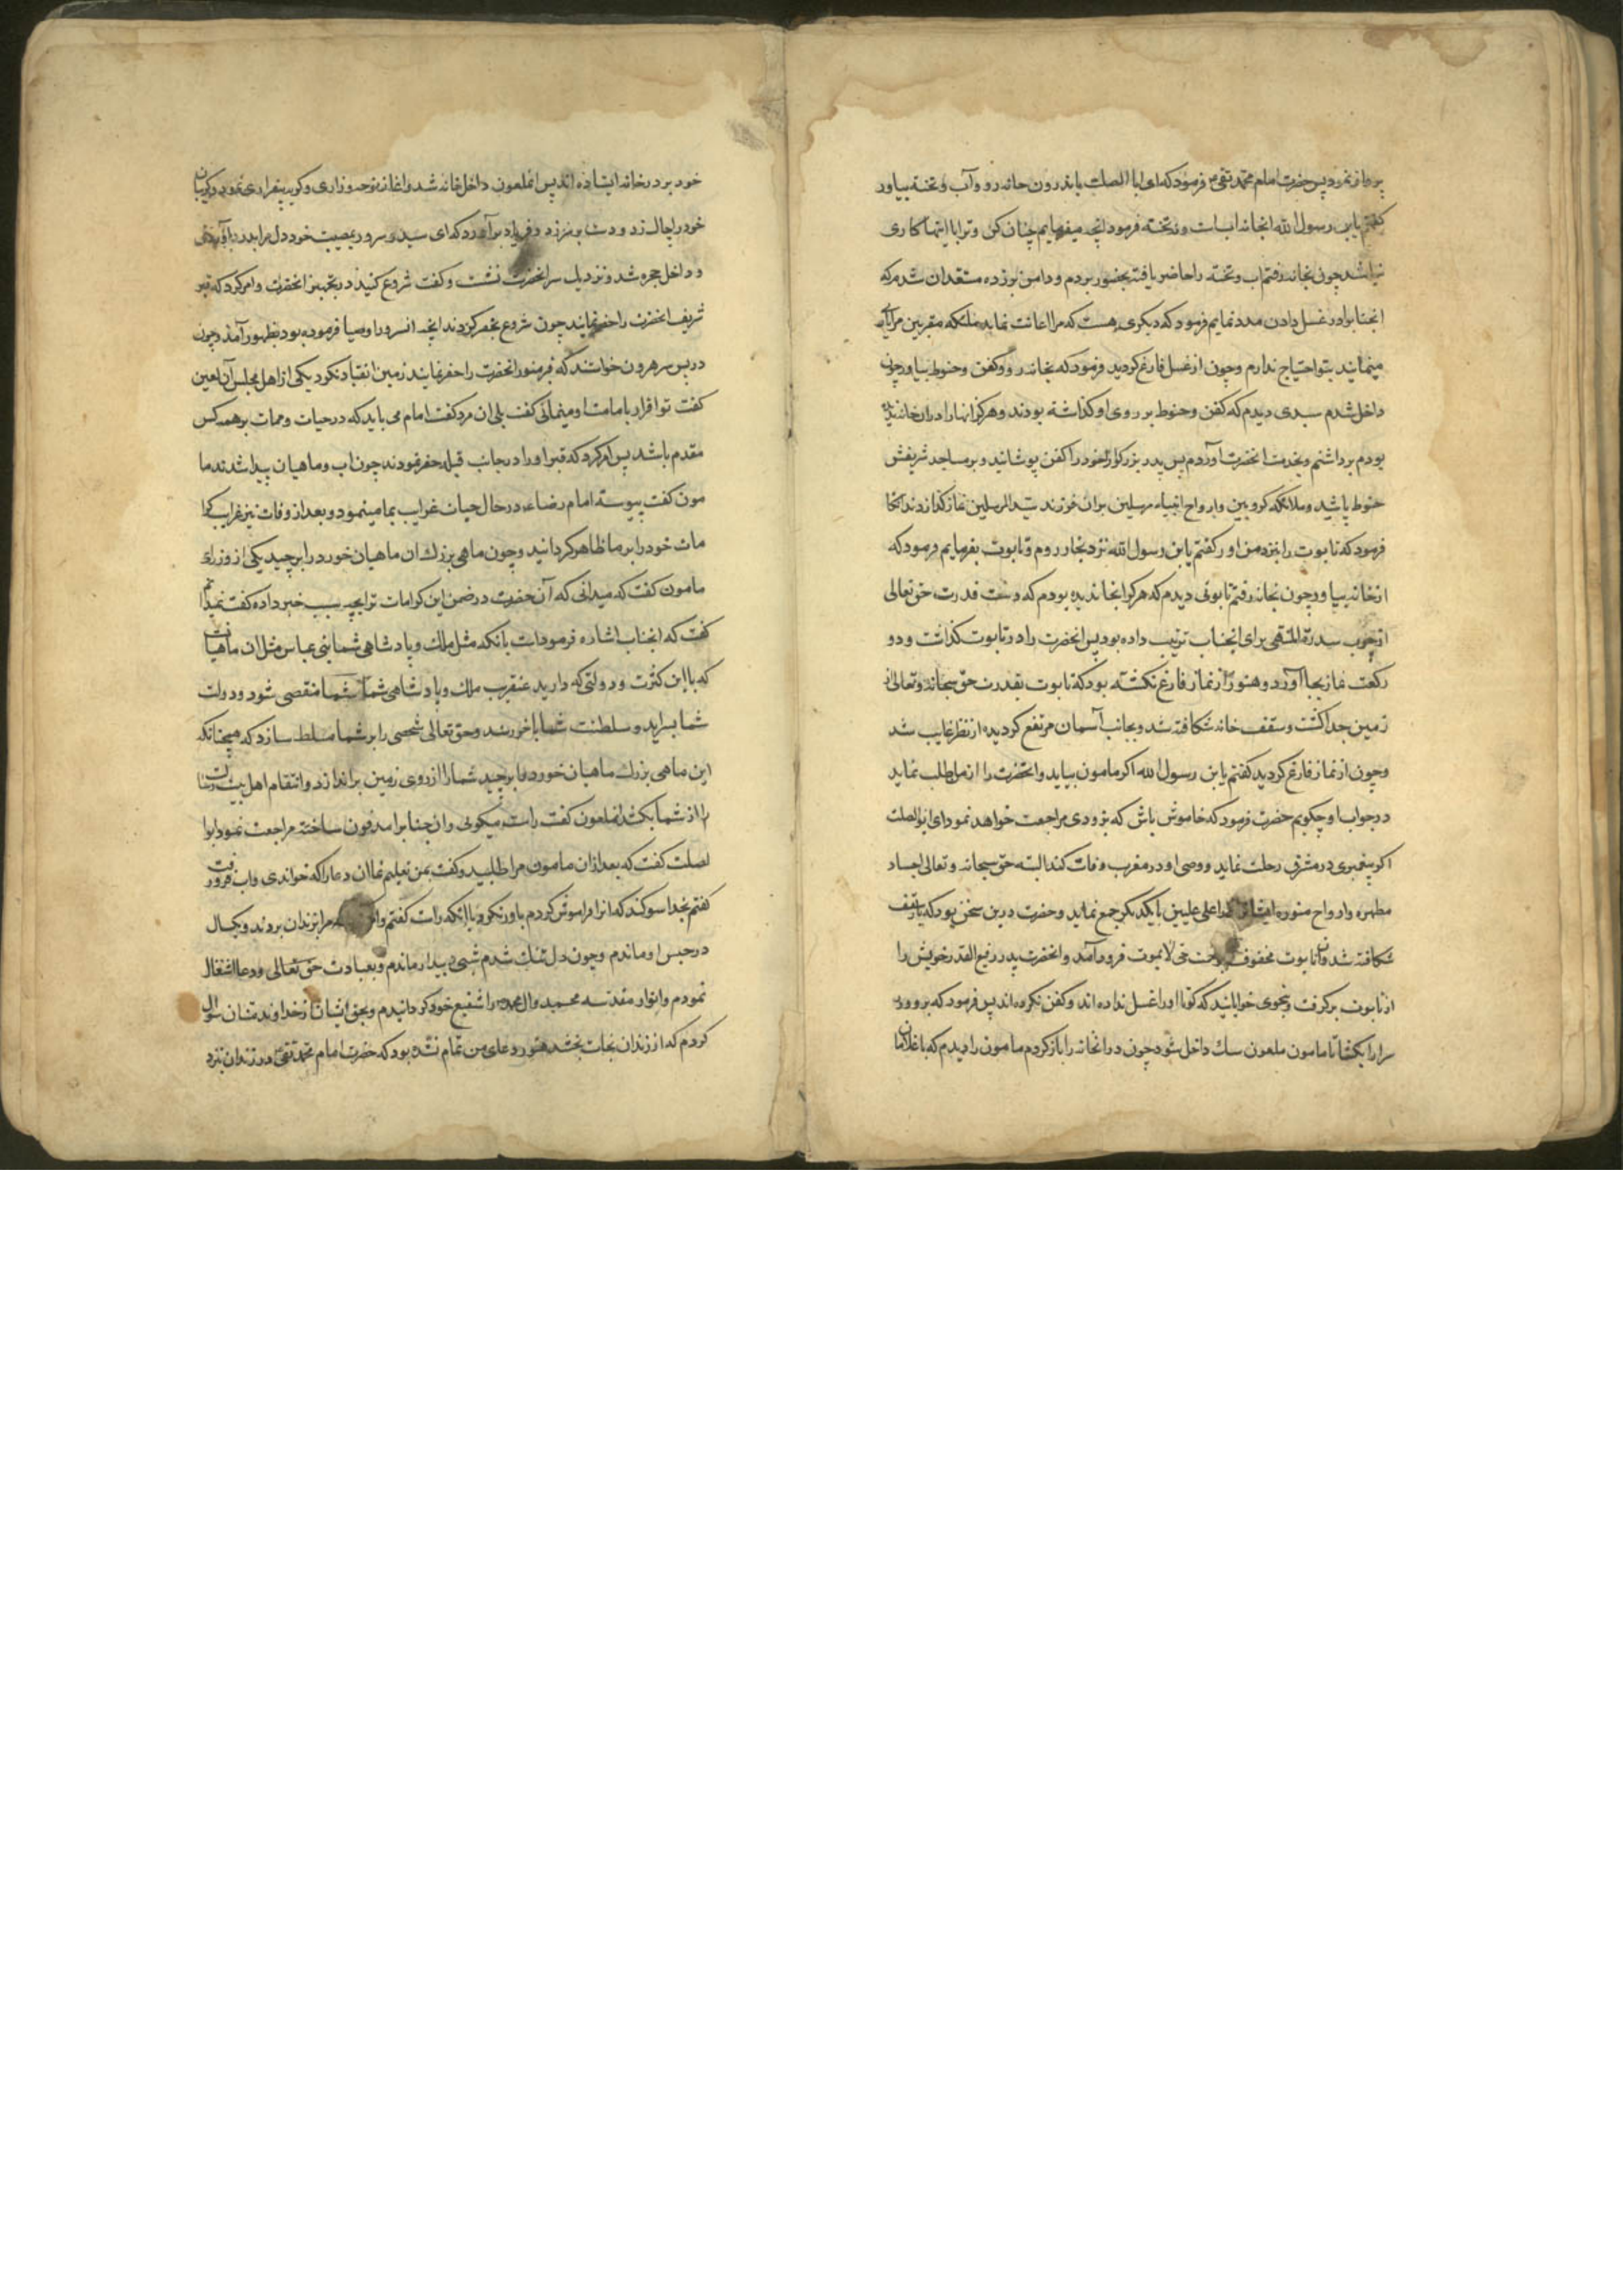 پرواز نمود پس حضرت امام محمد تقی فرمود که ای ابا الصلت باندرون خانه رو و آب و تخته بیاور
گفتم یابن رسول الله انجا نه اب است و نه تخته فرمود انچه میفرمایم چنان کن و ترا با اینها کاری
نباشد چون بخانه رفتم اب و تخته را حاضر یافته بحضور بردم و دامن بر زده مستعد ان شدم که
انجناب را در غسل دادن مدد نمایم فرمود که دیگری هست که مرا اعانت نماید ملئکه مقربین مرا یاری
مینمایند بتو احتیاج ندارم و چون از غسل فارغ کردید فرمود که بخانه رو و کفن و حنوط بیاور چون
داخل شدم سبدی دیدم که کفن و حنوط بر روی او کذاشته بودند و هرکز انها را در ان خانه ندیده
بودم برداشتم و بخدمت انحضرت اوردم پس پدر بزرکوار خود را کفن پوشانید و بر مساجد شریفش
حنوط پاشید و ملائکه کروبین و ارواح انبیاء مرسلین بران فرزند سید المرسلین نماز کذاردند انکا
فرمود که تابوت را بنزد من اور گفتم یابن رسول الله نزد نجار روم و تابوت بفرمایم فرمود که
از خانه بیاور چون بخانه رفتم تابوتی دیدم که هرکز انجا ندیده بودم که دست قدرت حق تعالی
از چوب سدرة المنتهی برای انجناب ترتیب داده بود پس انحضرت را در تابوت کذاشت و دو
رکعت نماز بجا آورد و هنوز از نماز فارغ نکشته بود که تابوت بقدرت حق سبحانه و تعالی از
زمین جدا کشت و سقف خانه شکافته شد و بجانب آسمان مرتفع کردیده از نظر غایب شد
و چون از نماز فارغ کردید کفتم یابن رسول الله اکر مامون بیاید و انحضرت را از من طلب نماید
در جواب او چکویم حضرت فرمود که خاموش باش که بزودی مراجعت خواهد نمود ای ابوالصلت
اکر پیغمبری در مشرق رحلت نماید و وصی او در مغرب وفات کند البته حق سبحانه و تعالی اجساد
مطهره و ارواح منوره ایشانرا در اعلی علیین با یکدیکر جمع نماید و حضرت درین سخن بود که باز سقف
شکافته شد و ان تابوت محفوف برحمت حی لایموت فرود آمد و انحضرت پدر رفیع القدر خویش را
از تابوت برکرفت و بنحوی خوابانید که کویا او را غسل نداده اند و کفن نکرده اند پس فرمود که برو و در
سرا را بکشا تا مامون ملعون سک داخل شود چون در انخانه را باز کردم مامون را دیدم که با غلامان
خود بر در خانه ایستاده اند پس انملعون داخل خانه شد و اغاز نوحه و زاری و کریه و بیقراری نمود و کریبان
خود را چاک زد و دست بر سر زد و فریاد برآورد که ای سید و سرور بمصیبت خود دل مرا بدرد آوردی
و داخل حجره شد و نزدیک سر انحضرت نشست و کفت شروع کنید در تجهیز انحضرت و امر کرد که قبر
شریف انحضرت را حفر نمایند چون شروع بحفر کردند انچه انسرور اوصیا فرموده بود بظهور آمد و چون
در پس سر هرون خواستند که قبر منور انحضرت را حفر نمایند زمین انقیاد نکرد یکی از اهل مجلس آن لعین
کفت تو اقرار بامامت او مینمائی کفت بلی ان مرد کفت امام می باید که در حیات و ممات بر همه کس
مقدم باشد پس امر کرد که قبر او را در جانب قبله حفر نمودند چون اب و ماهیان پیدا شدند ما
مون کفت پیوسته امام رضاء در حال حیات غرایب بما مینمود و بعد از وفات نیز غرایب کرا
مات خود را بر ما ظاهر کردانید و چون ماهی بزرک ان ماهیان خورد را برچید یکی از وزرای
مامون کفت که میدانی که آن حضرت در ضمن این کرامات ترا بچه سبب خبر داده کفت نمیدانم
کفت که انجناب اشاره فرموده است بانکه مثل ملک و پادشاهی شما بنی عباس مثل ان ماهیانست
که با این کثرت و دولتی که دارید عنقریب ملک و پادشاهی شما منقضی شود و دولت
شما بسراید و سلطنت شما باخر رسد و حق تعالی شخصی را بر شما مسلط سازد که همچنانکه
این ماهی بزرک ماهیان خورد را برچید شما را از روی زمین براندازد و انتقام اهل بیت رسالت
را از شما بکشد انملعون کفت راست میکوئی و ان جناب را مدفون ساخته مراجعت نمود ابوا
لصلت کفت که بعد از ان مامون مرا طلبید و کفت بمن تعلیم نما ان دعا را که خواندی و اب فرو رفت
کفتم بخدا سوکند که انرا فراموش کردم باور نکرد با انکه راست کفتم و امر مرا بزندان بردند و یکسال
در حبس او ماندم و چون دل تنک شدم شبی بیدار ماندم و بعبادت حق تعالی و دعا اشتغال
نمودم و انوار مقدسه محمد و ال محمد را شفیع خود کردانیدم و بحق ایشان از خداوند منان سؤال
کردم که از زندان نجات بخشد هنوز دعای من تمام نشده بود که حضرت امام محمد تقی در زندان نزد